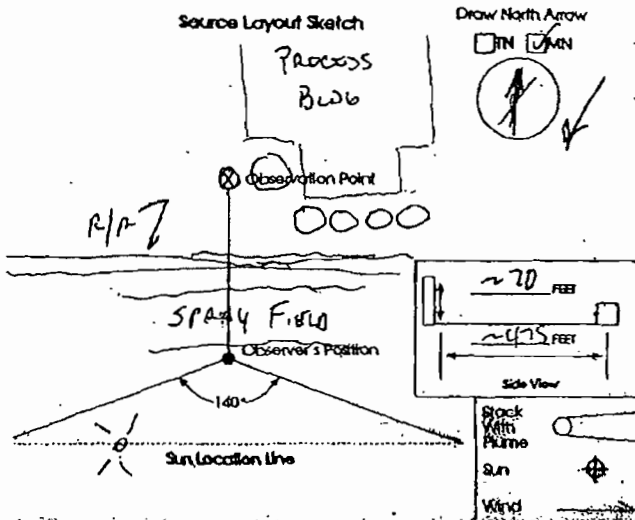 Source Layout Sketch
Draw North Arrow
TN MN
PROCESS
BLDG
Observation Point
R/R
SPRAY FIELD
Observer's Position
140°
Sun Location Line
~70 FEET
~475 FEET
Side View
Stack
With
Plume
Sun
Wind